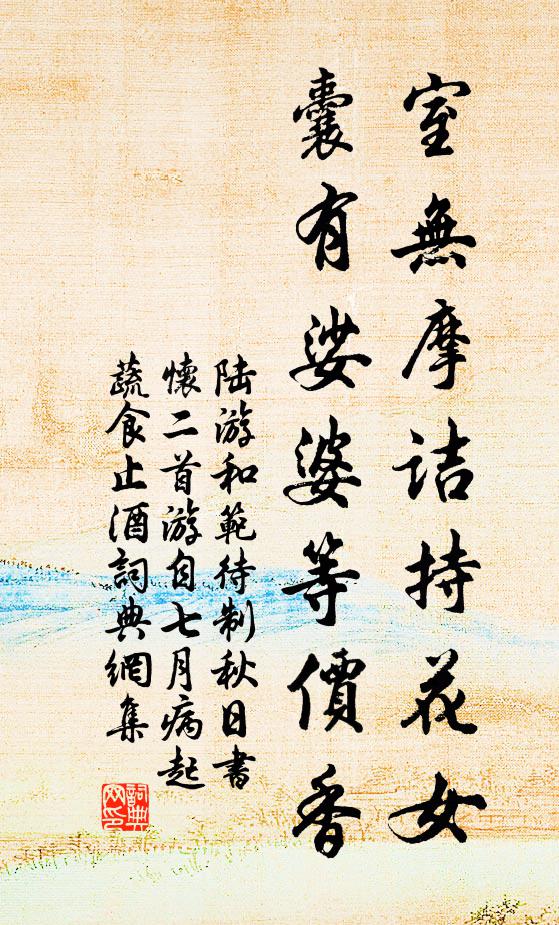 室無摩詰持花女
囊有娑婆等價香
陆游和範待制秋日書
懷二首游自七月病起
蔬食止酒詞典網集
詞典
网印